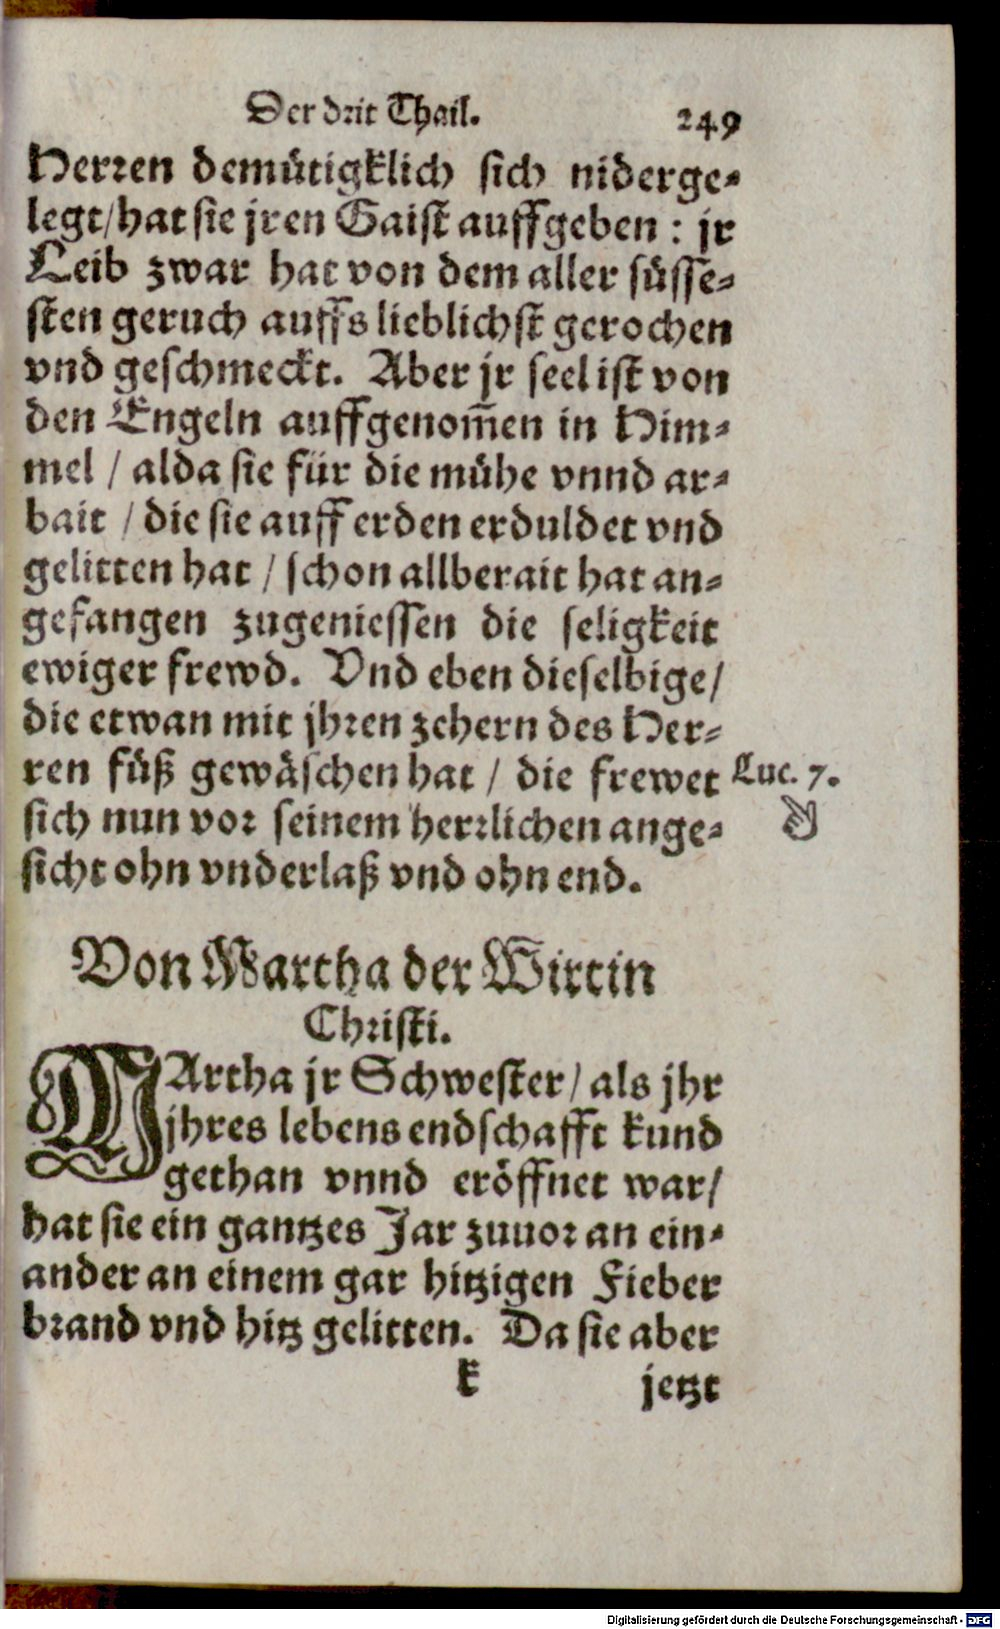 Der drit Thail. 249
Herren demütigklich sich niderge-
legt/hat sie jren Gaist auffgeben: jr
Leib zwar hat von dem aller süsse-
sten geruch auffs lieblichst gerochen
vnd geschmeckt. Aber jr seel ist von
den Engeln auffgenom̃en in Him-
mel / alda sie für die mühe vnnd ar-
bait / die sie auff erden erduldet vnd
gelitten hat / schon allberait hat an-
gefangen zugeniessen die seligkeit
ewiger frewd. Vnd eben dieselbige/
die etwan mit jhren zehern des Her-
ren füß gewäschen hat / die frewet
Luc. 7.
sich nun vor seinem herrlichen ange-
sicht ohn vnderlaß vnd ohn end.
Von Martha der Wirtin
Christi.
MArtha jr Schwester/ als jhr
jhres lebens endschafft kund
gethan vnnd eröffnet war/
hat sie ein gantzes Jar zuuor an ein-
ander an einem gar hitzigen Fieber
brand vnd hitz gelitten. Da sie aber
k jetzt
Digitalisierung gefördert durch die Deutsche Forschungsgemeinschaft - DFG